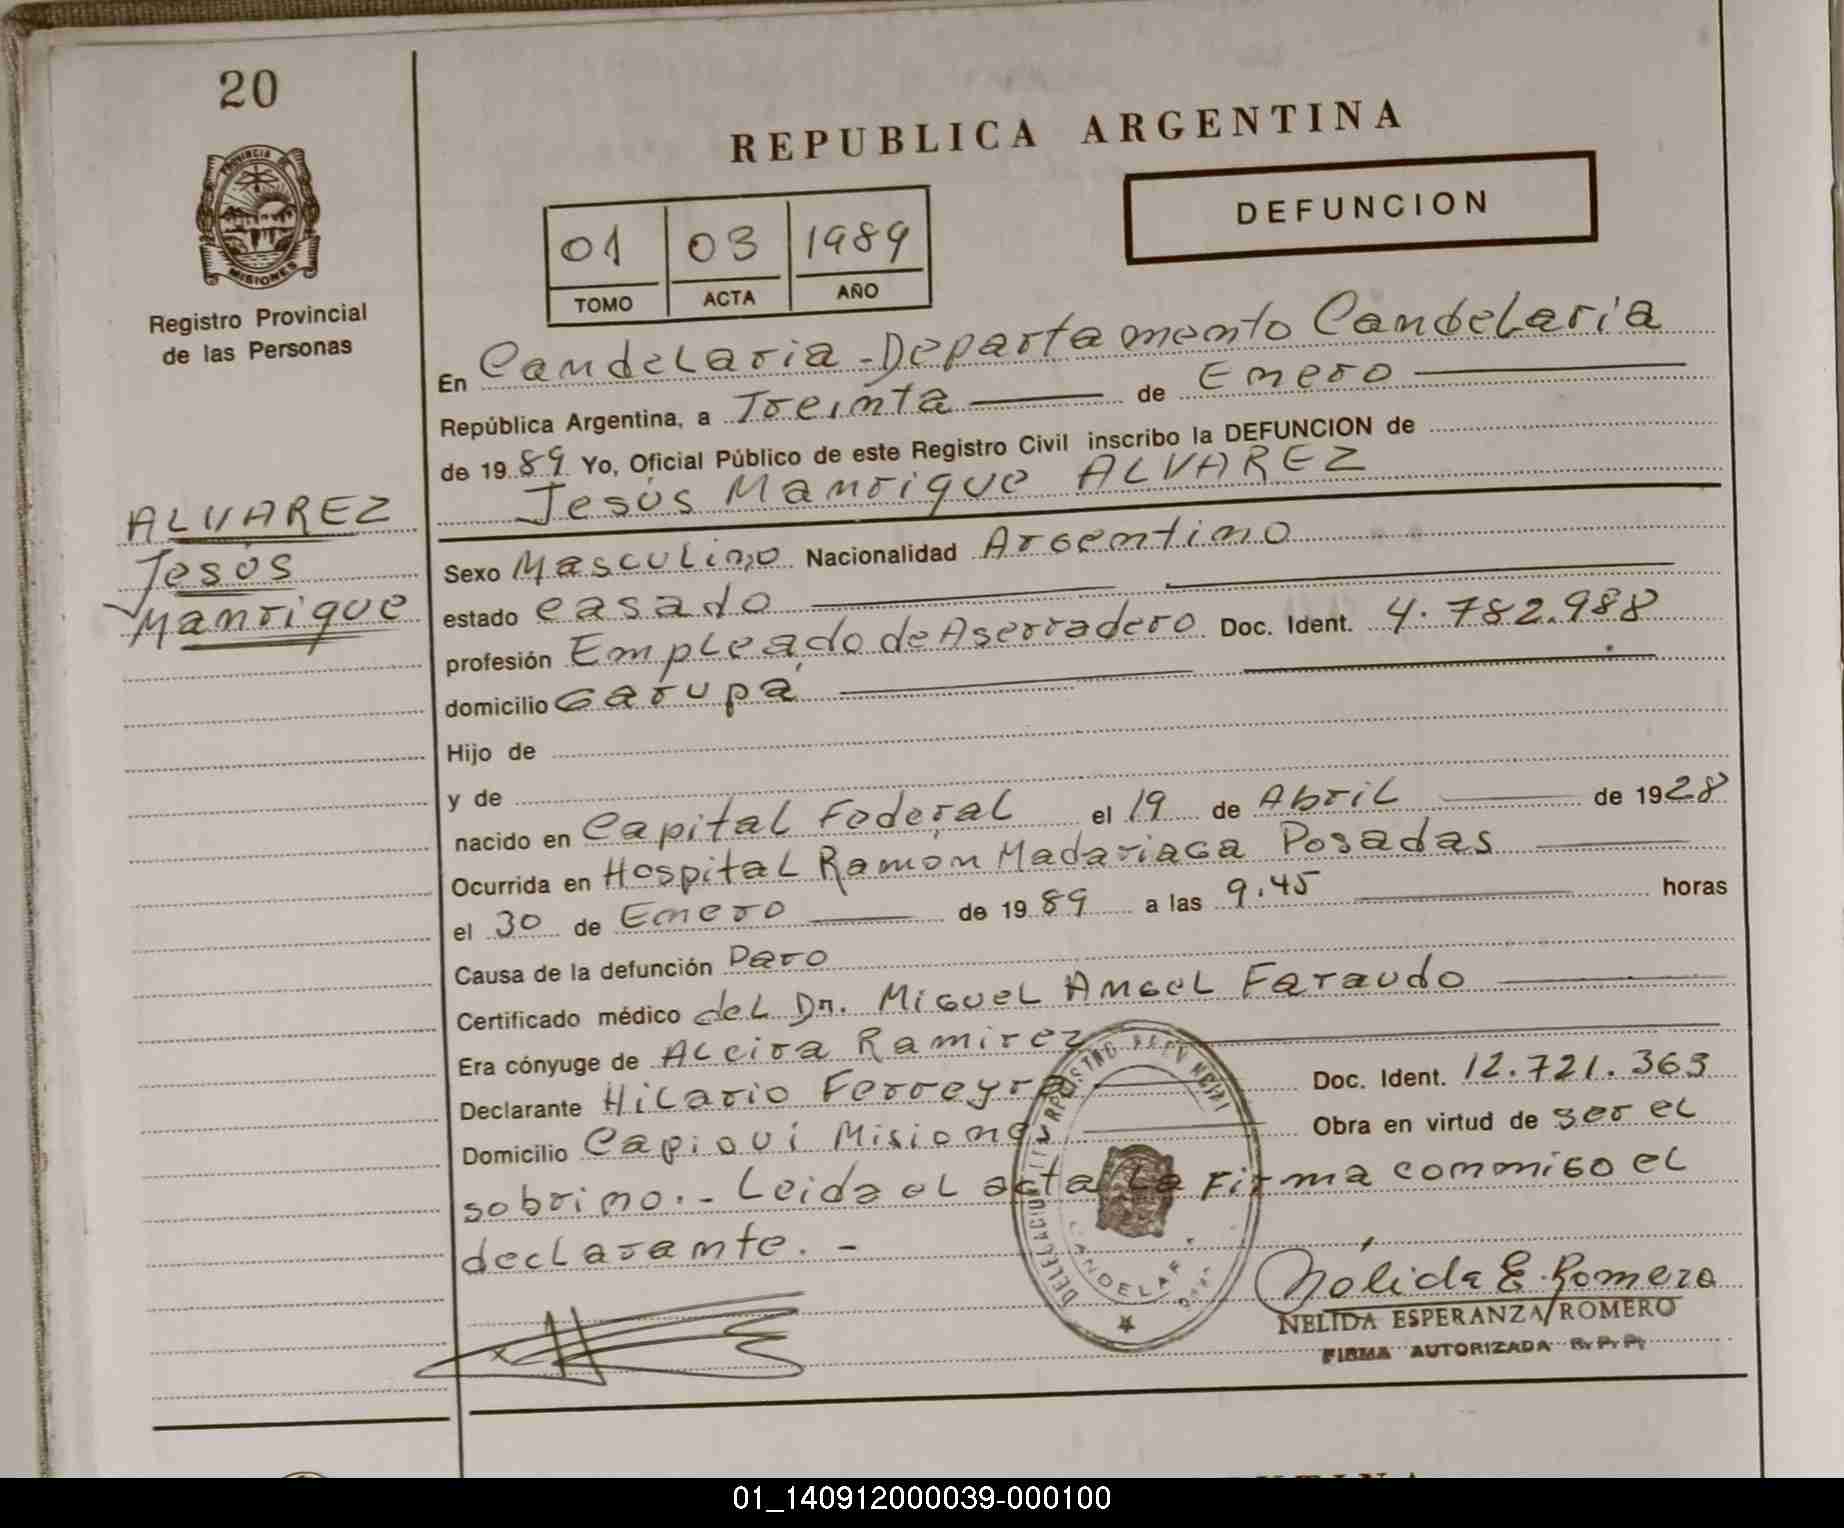 20
PROVINCIA DE
MISIONES
Registro Provincial
de las Personas
ALVAREZ
Jesús
Manrique
REPUBLICA ARGENTINA
DEFUNCION
01 03 1989
TOMO ACTA AÑO
En Candelaria - Departamento Candelaria
República Argentina, a Treinta de Enero
de 1989 Yo, Oficial Público de este Registro Civil inscribo la DEFUNCION de
Jesús Manrique ALVAREZ
Sexo Masculino Nacionalidad Argentino
estado casado
profesión Empleado de Aserradero Doc. Ident. 4.782.988
domicilio Garupá
Hijo de
y de
nacido en Capital Federal el 19 de Abril de 1928
Ocurrida en Hospital Ramón Madariaga Posadas
el 30 de Enero de 1989 a las 9.45 horas
Causa de la defunción Paro
Certificado médico del Dr. Miguel Angel Faraudo
Era cónyuge de Alcira Ramirez
Declarante Hilario Ferreyra Doc. Ident. 12.721.363
Domicilio Capioví Misiones Obra en virtud de ser el
sobrino.- Leida el acta la firma conmigo el
declarante.-
Nélida E. Romero
NELIDA ESPERANZA ROMERO
FIRMA AUTORIZADA R.P.P.
01_140912000039-000100